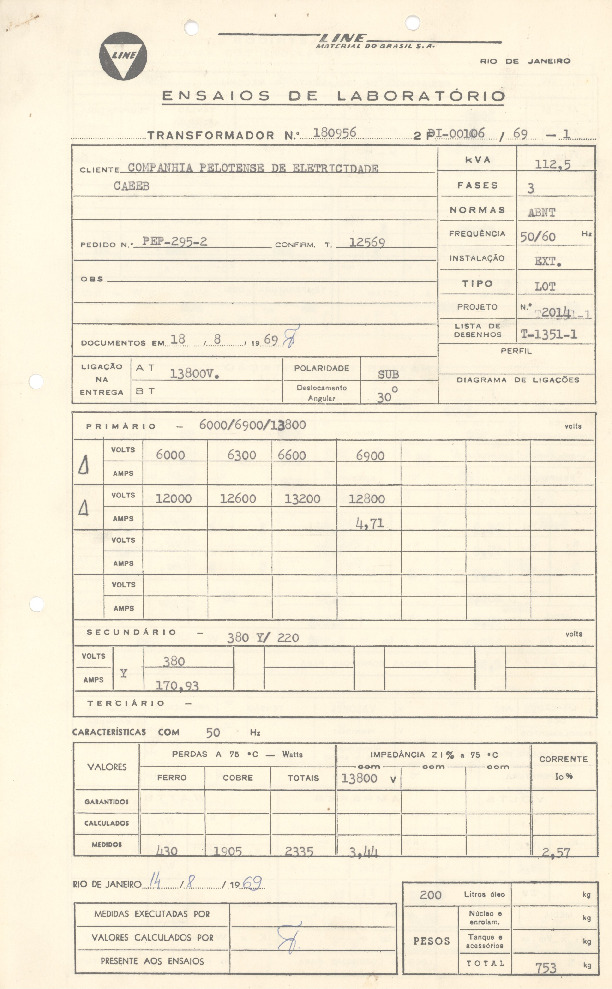 LINE
LINE
MATERIAL DO BRASIL S.A.
RIO DE JANEIRO
ENSAIOS DE LABORATÓRIO
TRANSFORMADOR N.º 180956 2 PI-00106 / 69 - 1
CLIENTE COMPANHIA PELOTENSE DE ELETRICIDADE
CAEEB
kVA 112,5
FASES 3
NORMAS ABNT
PEDIDO N.º PEP-295-2 CONFIRM. T. 12569
FREQUÊNCIA 50/60 Hz
INSTALAÇÃO EXT.
OBS
TIPO LOT
PROJETO N.º
LISTA DE DESENHOS T-1351-1
DOCUMENTOS EM 18 / 8 / 1969
PERFIL
LIGAÇÃO NA ENTREGA A T 13800V. POLARIDADE SUB
B T Deslocamento Angular 30º
DIAGRAMA DE LIGAÇÕES
PRIMÁRIO - 6000/6900/13800 volts
Δ VOLTS 6000 6300 6600 6900
AMPS
Δ VOLTS 12000 12600 13200 12800
AMPS 4,71
VOLTS
AMPS
VOLTS
AMPS
SECUNDÁRIO - 380 Y/ 220 volts
VOLTS Y 380
AMPS 170,93
TERCIÁRIO -
CARACTERÍSTICAS COM 50 Hz
VALORES PERDAS A 75 °C — Watts IMPEDÂNCIA Z I % a 75 °C CORRENTE
com com com
FERRO COBRE TOTAIS 13800 V Io %
GARANTIDOS
CALCULADOS
MEDIDOS 430 1905 2335 3,44 2,57
RIO DE JANEIRO 14 / 8 / 1969
200 Litros óleo kg
MEDIDAS EXECUTADAS POR
VALORES CALCULADOS POR
PRESENTE AOS ENSAIOS
PESOS Núcleo e enrolam. kg
Tanque e acessórios kg
TOTAL 753 kg